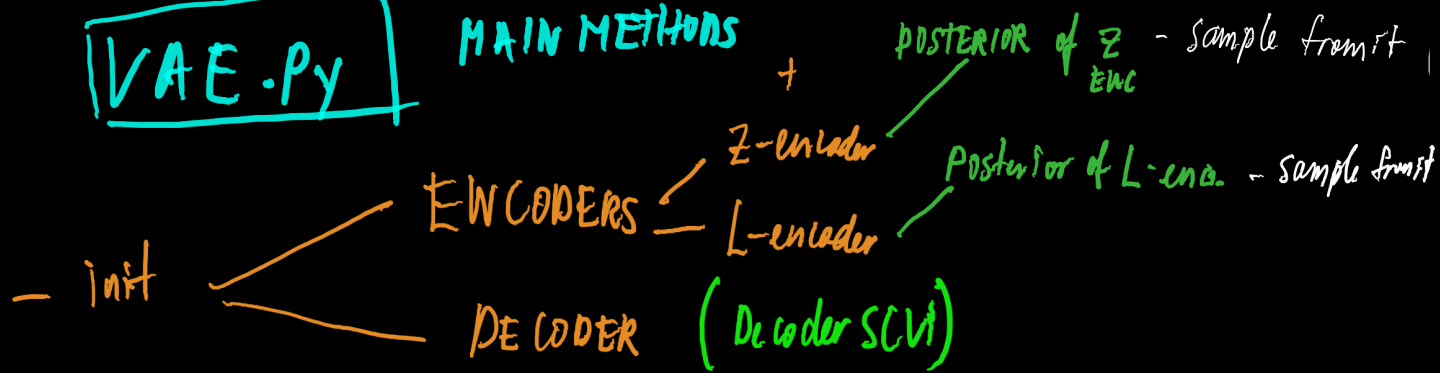 VAE.Py
MAIN METHODS
+
POSTERIOR of Z - sample from it
ENC
Z-encoder
Posterior of L-enc. - sample from it
ENCODERS
L-encoder
- init
DECODER (Decoder SCVI)